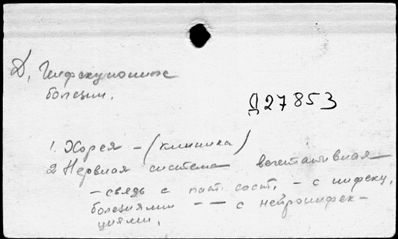 Д, Инфекционные
болезни.
Д27853
1. Хорея - (клиника)
2 Нервная система вегетативная
- связь с пат. сост. - с инфекц.
болезнями - - с нейроинфек-
циями.